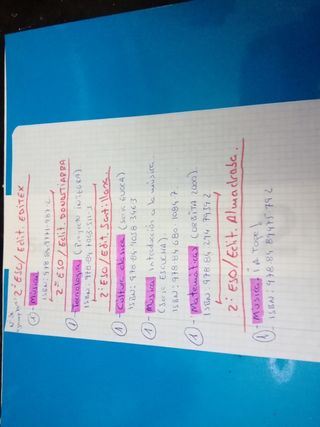 2º ESO/ Edit. EDITEX
① - Música
ISBN: 978.84.9771.987.2
2º ESO/ Edit. DONOSTIARRA
① - Tecnología (Proyecto INTEGRA)
ISBN: 978.84.7063.511.3
2º ESO/ Edit. Santillana.
① - Cultura clásica (Serie EUREKA)
ISBN: 978 84 9058 346 3
① - Música Introducción a la música
(Serie ESCUCHA)
ISBN: 978 84 680 1084 7
① - Matemáticas (ÓRBITA 2000).
ISBN: 978 84 294 7934 2
2º ESO/ Edit. Almadraba.
① - Música ¡A Tope!
ISBN: 978.84.